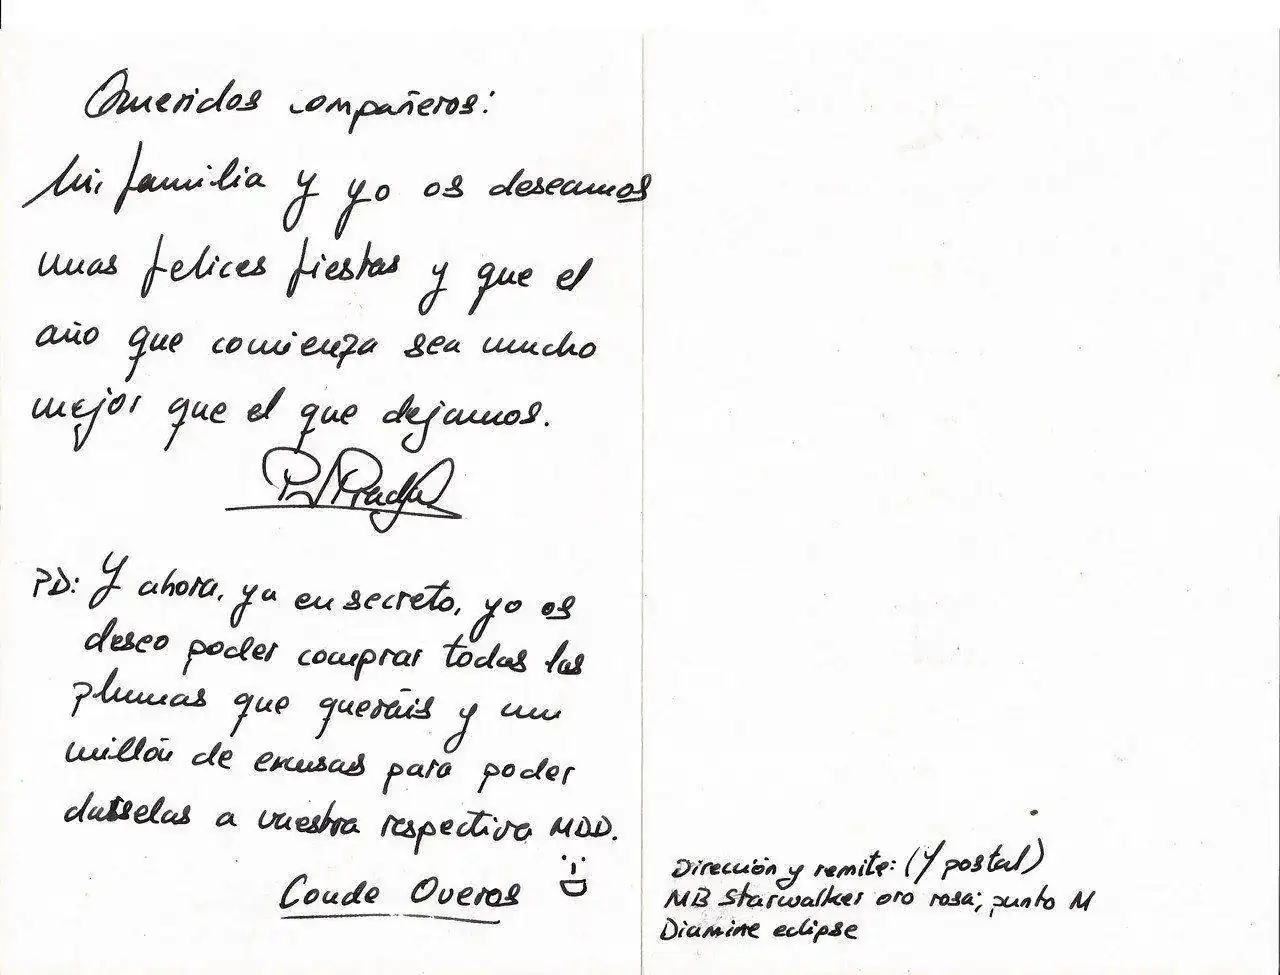 Queridos compañeros:
Mi familia y yo os deseamos
unas felices fiestas y que el
año que comienza sea mucho
mejor que el que dejamos.
PD: Y ahora, ya en secreto, yo os
deseo poder comprar todas las
plumas que queráis y un
millón de excusas para poder
dárselas a vuestra respectiva MDD.
Conde Overos
Dirección y remite: (Y postal)
MB Starwalker oro rosa; punto M
Diamine eclipse